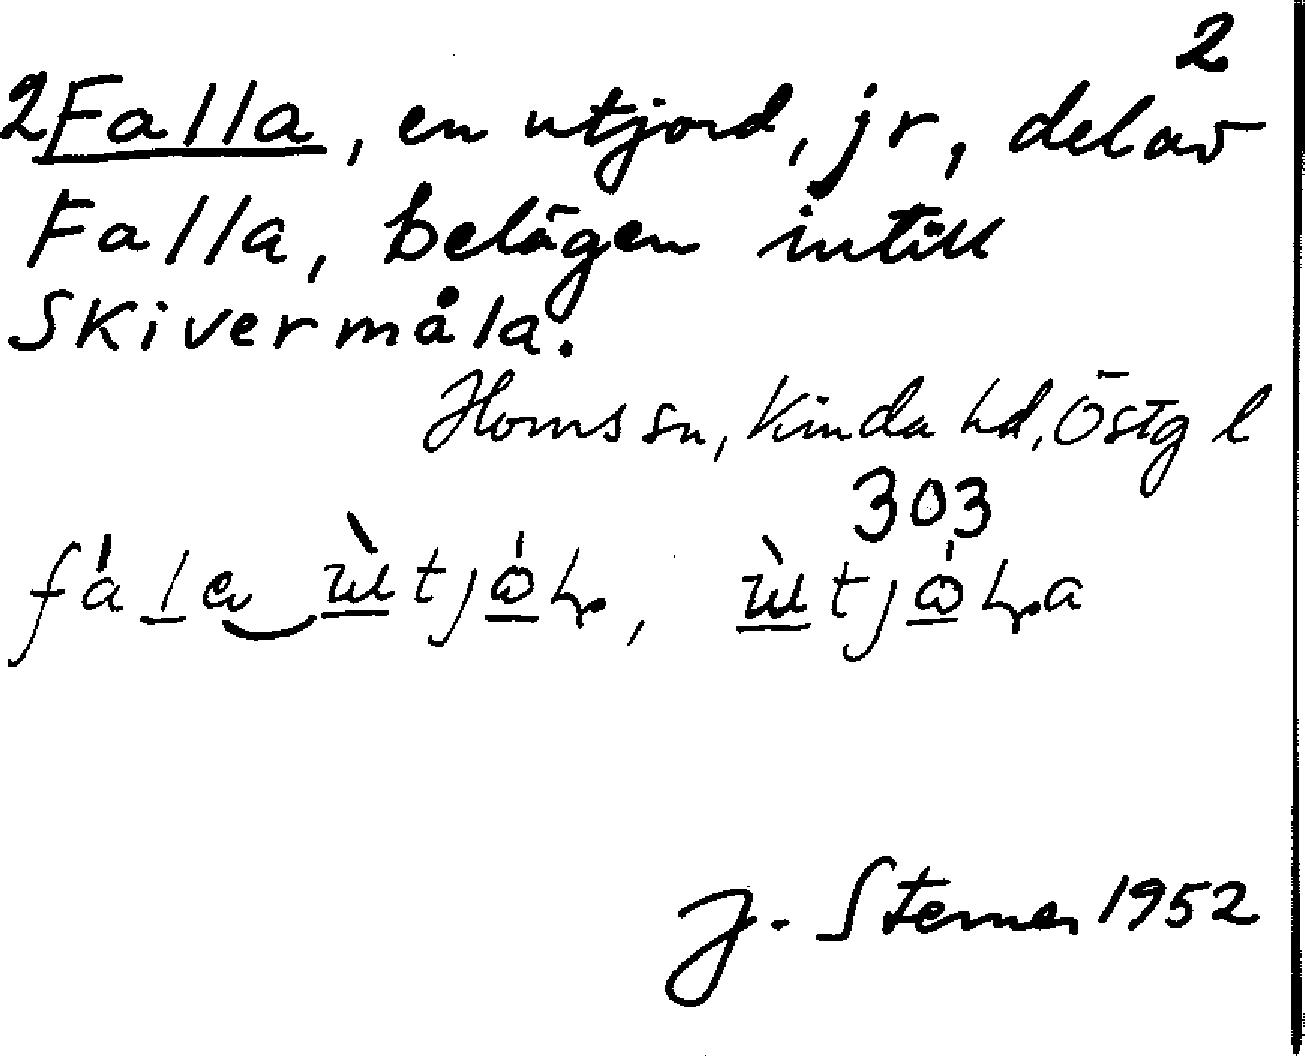 2
2 Falla, en utjord, jr, del av
Falla, belägen intill
Skivermåla.
Horns sn, Kinda hd, Östg l
303
J. Sterner 1952